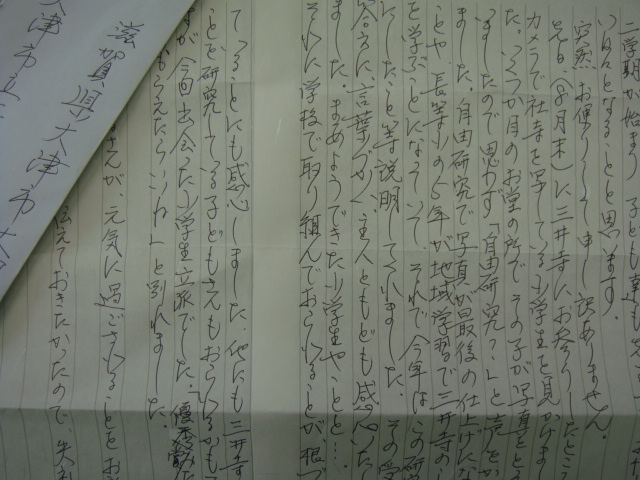 二学期が始まり 子ども達も
いほんとなることと思います。
突然 お便りして申し訳ありません。
先日、(8月末)に三井寺にお参りしたところ
カメラで社寺を写している小学生を見かけまし
た。いつか月のお堂の所で その子が写真をと
りましたので思わず「自由研究?」と声をか
ました。自由研究で写真が最後の仕上げにな
ことや、長等小の5年が地域学習で三井寺の
を学ぶことになっていて、それで今年はこの研
にしたこと等 説明してくれました。その受
答えに、言葉づかい 主人ともども感心いたし
ました。まあようできた小学生やことと…。
それに学校で取り組んでおられることが根づ
ていることにも感心しました。他にも三井寺
ことを研究している子どもさんもおられるかも
すが 今回出会った小学生 立派でした。「優秀賞
もらえたらいいね」と別れました。
さんが 元気に過ごされることをお
伝えておきたかったので、失礼
滋賀県大津市大
大津市立